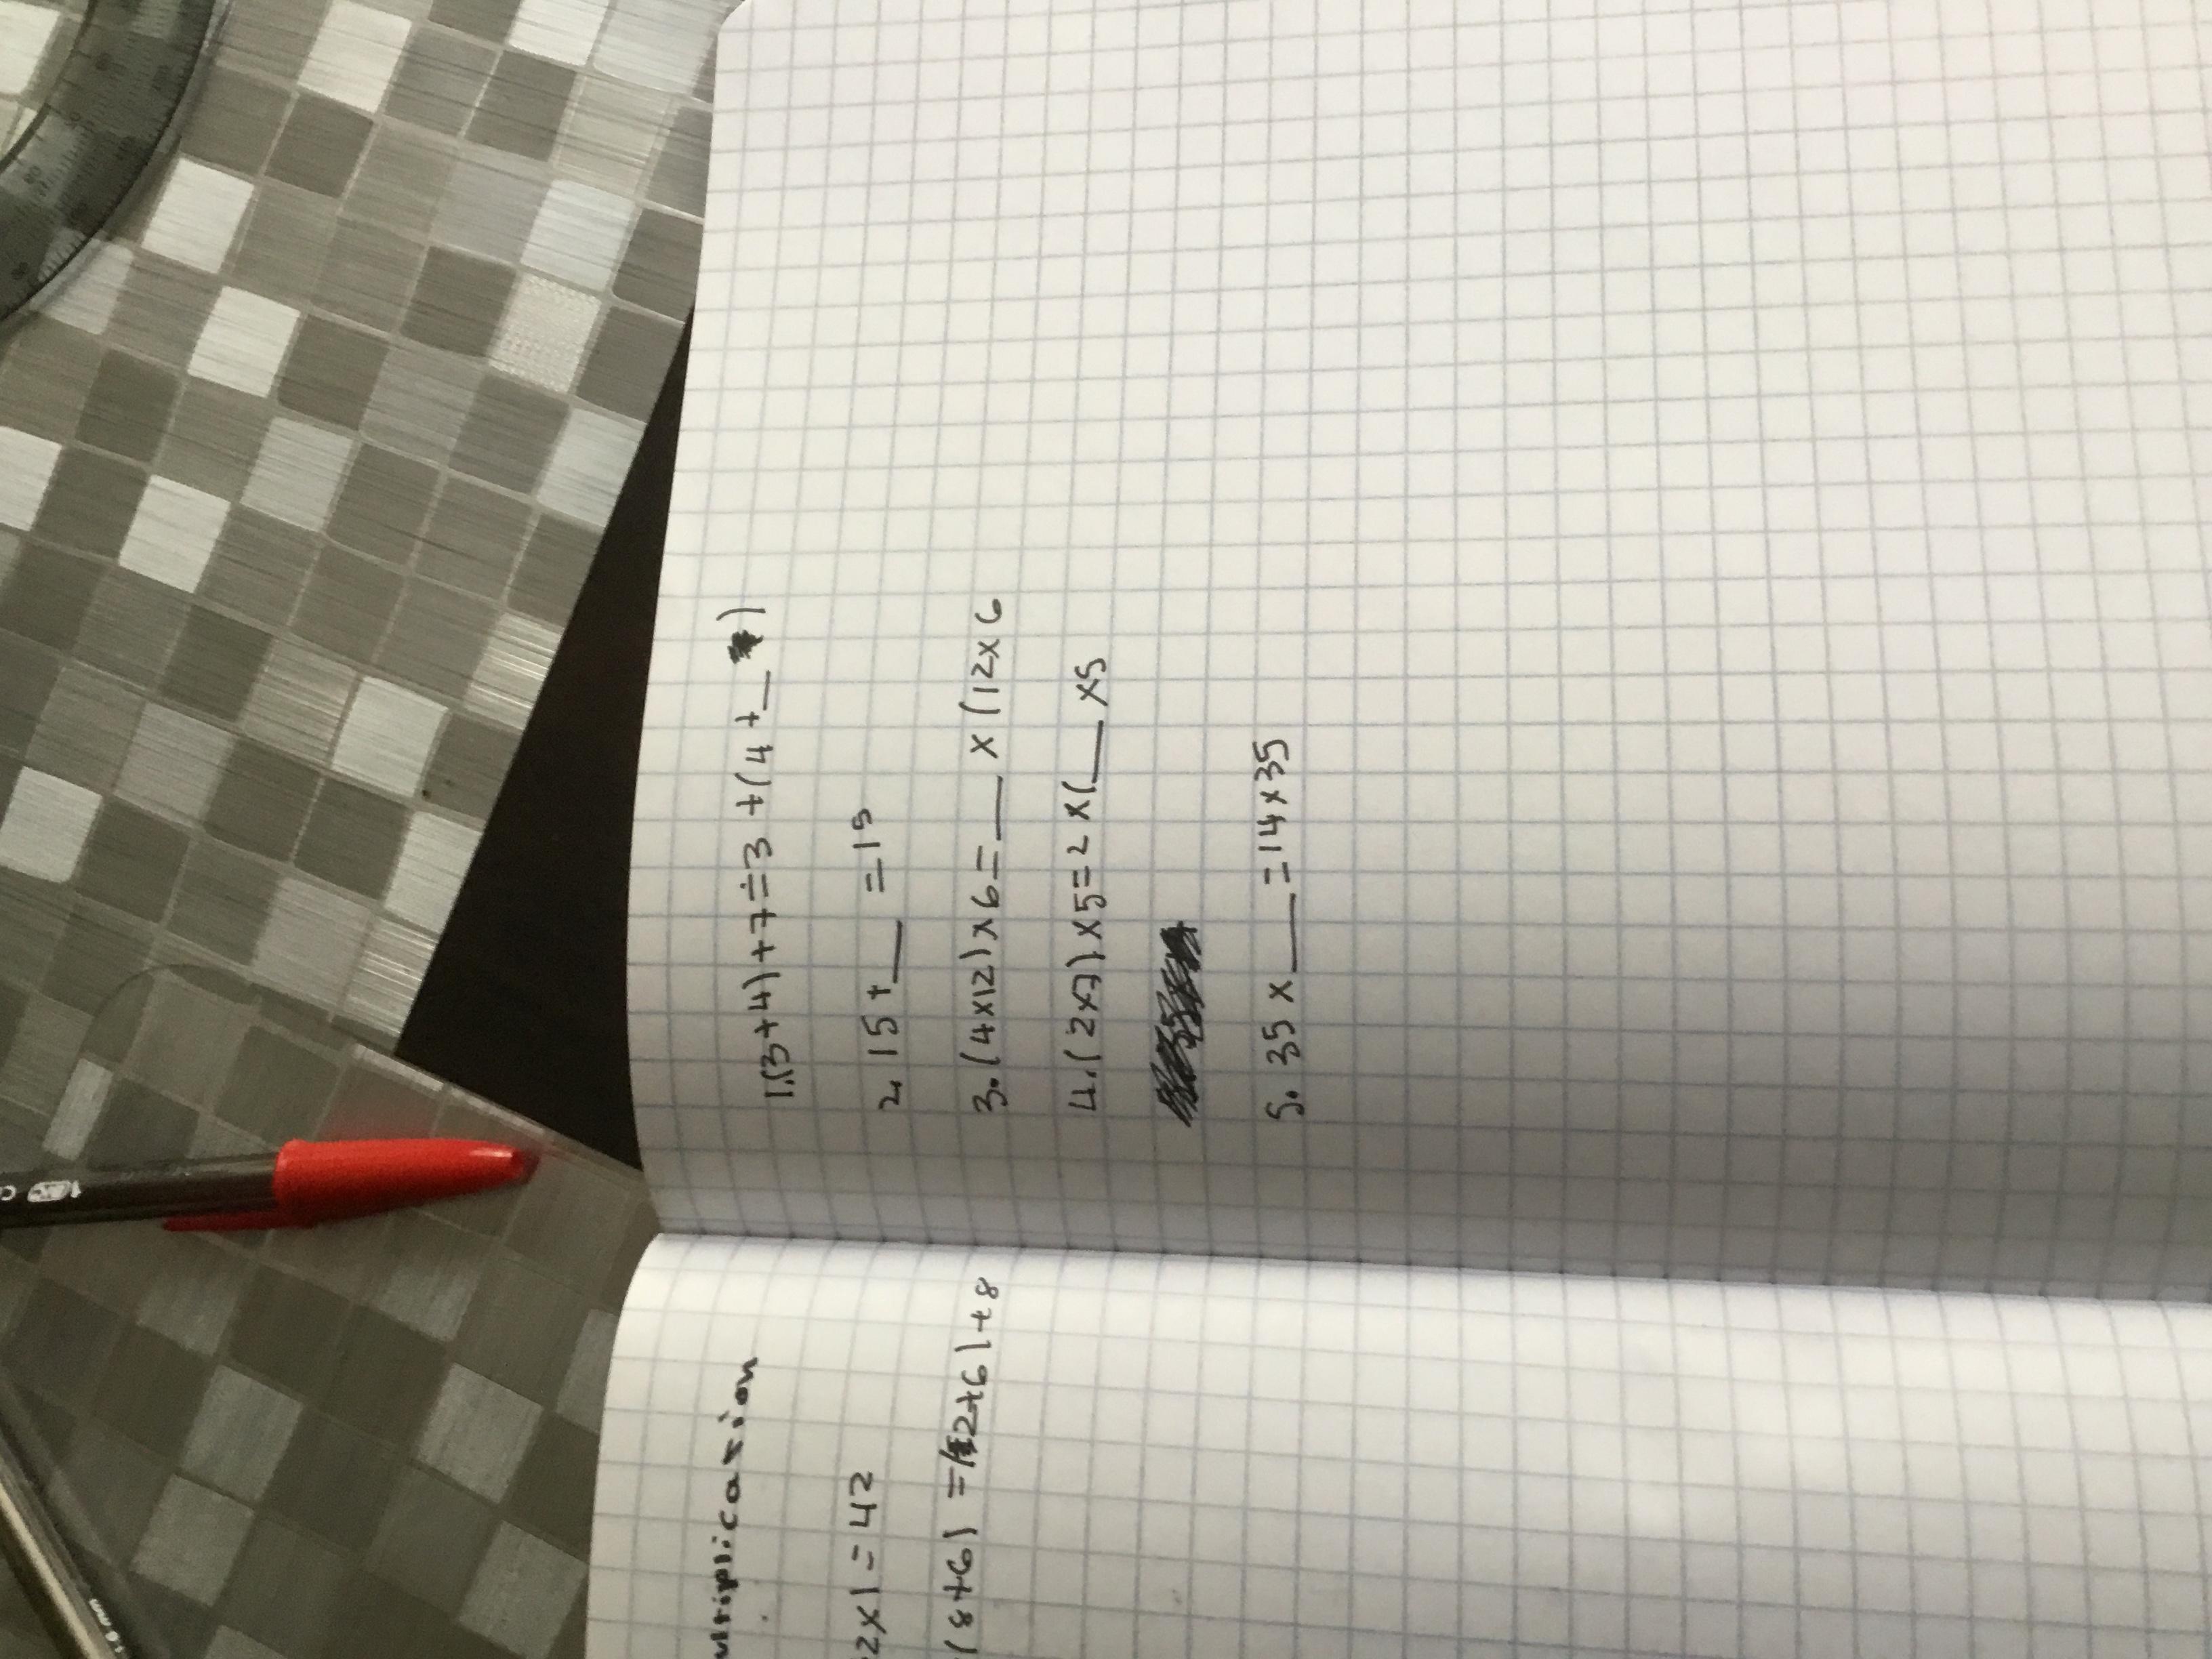 ultiplication
2x1=42
(8+6)=(12+6)+8
1.(3+4)+7÷3+(4+__)
2. 15+__=15
3.(4x12)x6=__x(12x6
4.(2x7)x5=2x(__x5
5. 35x__=14x35